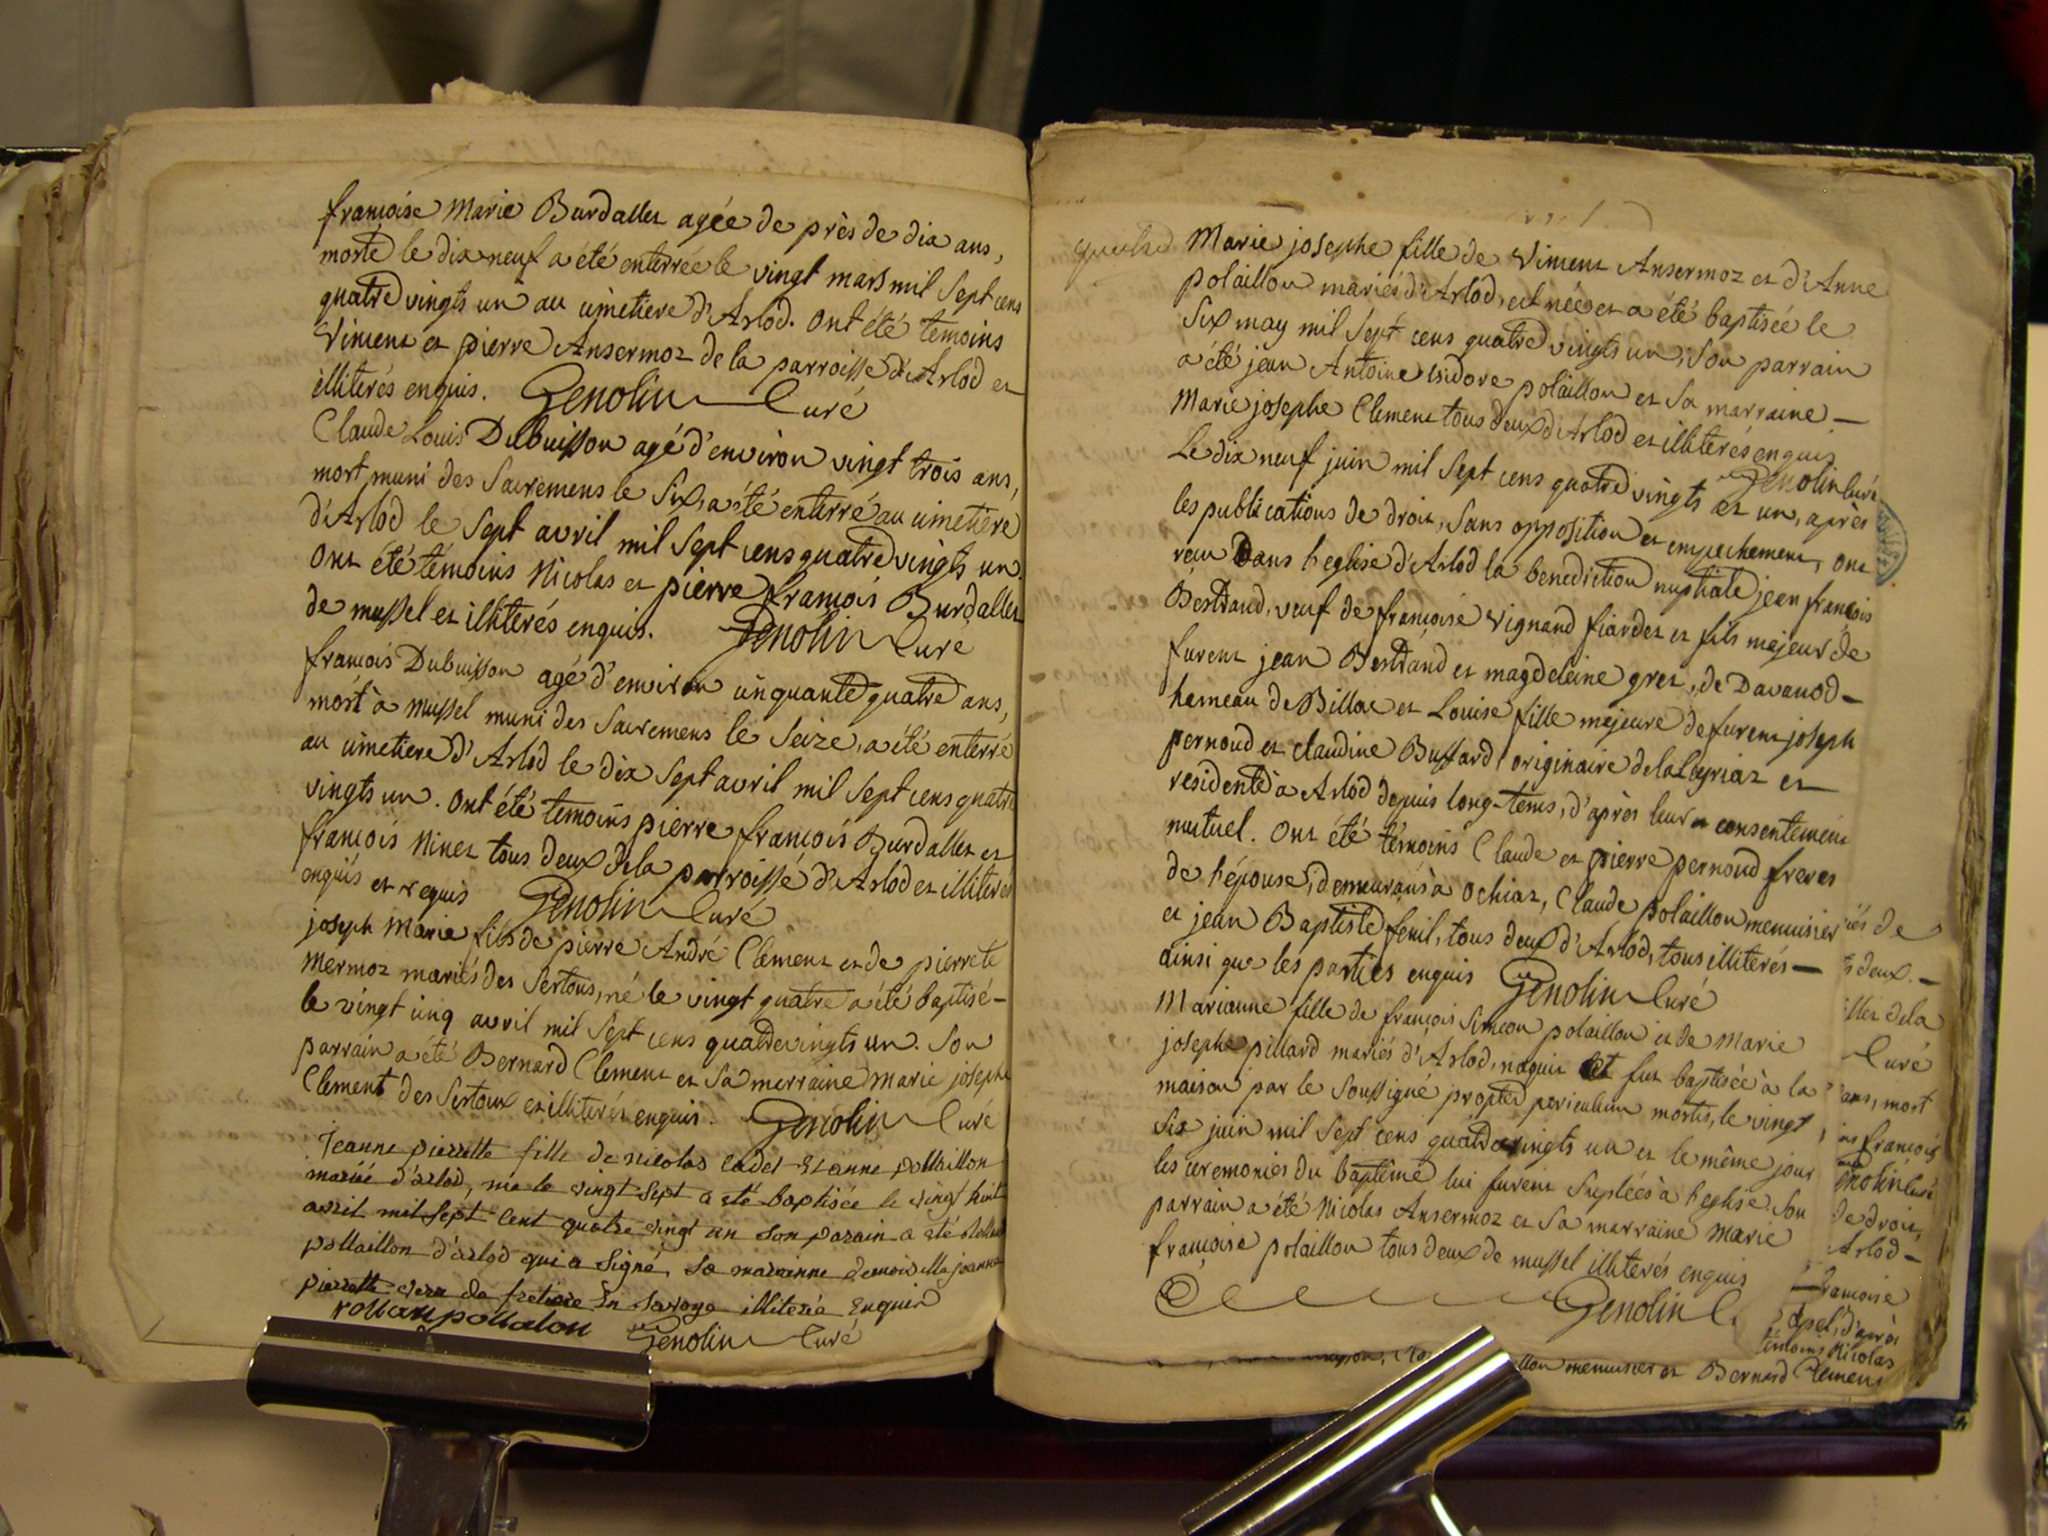 françoise Marie Burdallet agée de près de dix ans,
morte le dix neuf a été enterrée le vingt mars mil sept cens
quatre vingts un au cimetiere d'Arlod. ont été temoins
Vincent et pierre Ansermoz de la parroisse d'Arlod et
illiterés enquis. Genolin Curé
Claude Louis Dubuisson agé d'environ vingt trois ans,
mort muni des Sacremens le Six, a été enterré au cimetiere
d'Arlod le Sept avril mil Sept cens quatre vingts un.
Ont été témoins Nicolas et pierre françois Burdallet
de mussel et illiterés enquis. Genolin Curé
françois Dubuisson agé d'environ cinquante quatre ans,
mort à mussel muni des Sacremens le Seize, a été enterré
au cimetiere d'Arlod le dix Sept avril mil Sept cens quatre
vingts un. Ont été temoins pierre françois Burdallet et
françois Ninet tous deux de la parroisse d'Arlod et illiterés
enquis et requis Genolin Curé
joseph Marie fils de pierre André Clement et de pierrete
Mermoz mariés des Sertoux, né le vingt quatre a été baptisé -
le vingt cinq avril mil Sept cens quatre vingts un. Son
parrain a été Bernard Clement et Sa marraine Marie josephe
Clement des Sertoux et illiterés enquis. Genolin Curé
Jeanne pierrette fille de nicolas cadet et anne pollaillon
mariié d'arlod, née le vingt sept a été baptisée le vingt huit
avril mil sept cent quatre vingt un son parain a été Rollan
pollaillon d'arlod qui a signé, sa maraine demoiselle jeanne
pierrette en savoye illiterée enquis
rollan pollalion Genolin Curé
Marie josephe fille de Vincent Ansermoz et d'Anne
polaillon mariés d'Arlod, est née et a été baptisée le
Six may mil Sept cens quatre vingts un, Son parrain
a été jean Antoine isidore polaillon et Sa marraine -
Marie josephe Clement tous deux d'Arlod et illiterés enquis
Genolin Curé
Le dix neuf juin mil Sept cens quatre vingts et un, après
les publications de droit, Sans opposition et empechement, ont
reçu Dans l'eglise d'Arlod la benediction nuptiale jean françois
Bertrand, veuf de françoise Vignand fiardet et fils majeur de
furent jean Bertrand et magdeleine gret, de Davanod -
hameau de Billiat et Louise fille majeure de furent joseph
pernoud et claudine Bussard originaire de la Leyriaz et
residente à Arlod depuis long-tems, d'après leur consentement
mutuel. Ont été témoins Claude et pierre pernoud freres
de l'épouse, demeurans à Ochiaz, Claude polaillon menuisier
et jean Baptiste fenil, tous deux d'Arlod, tous illiterés -
ainsi que les parties enquis Genolin Curé
Marianne fille de françois Simeon polaillon et de Marie
josephe pillard mariés d'Arlod, naquit et fut baptisée à la
maison par le Soussigné propter periculum mortis, le vingt
Six juin mil Sept cens quatre vingts un et le même jour
les ceremonies du baptême lui furent Supléés à l'eglise. Son
parrain a été Nicolas Ansermoz et Sa marraine Marie
françoise polaillon tous deux de mussel illiterés enquis
Genolin C.
iés de
deux. -
de la
Curé
ans, mort
françois
Genolin Curé
de droit,
Arlod -
françoise
d'après
témoins Nicolas
menuisier et Bernard Clement